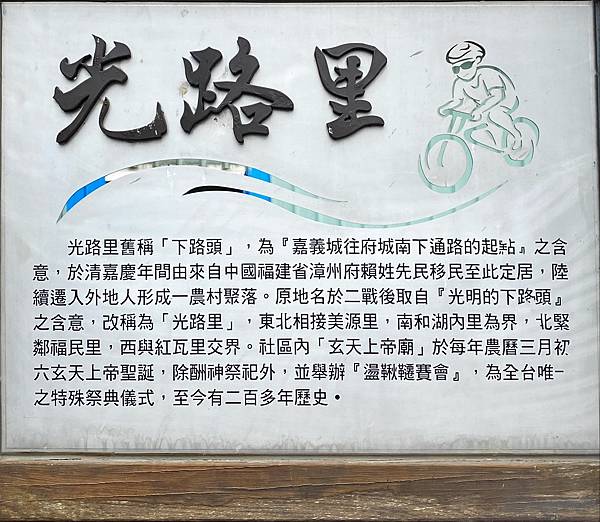 光路里
光路里舊稱「下路頭」，為『嘉義城往府城南下通路的起點』之含
意，於清嘉慶年間由來自中國福建省漳州府賴姓先民移民至此定居，陸
續遷入外地人形成一農村聚落。原地名於二戰後取自『光明的下路頭』
之含意，改稱為「光路里」，東北相接美源里，南和湖內里為界，北緊
鄰福民里，西與紅瓦里交界。社區內「玄天上帝廟」於每年農曆三月初
六玄天上帝聖誕，除酬神祭祀外，並舉辦『盪鞦韆賽會』，為全台唯一
之特殊祭典儀式，至今有二百多年歷史。